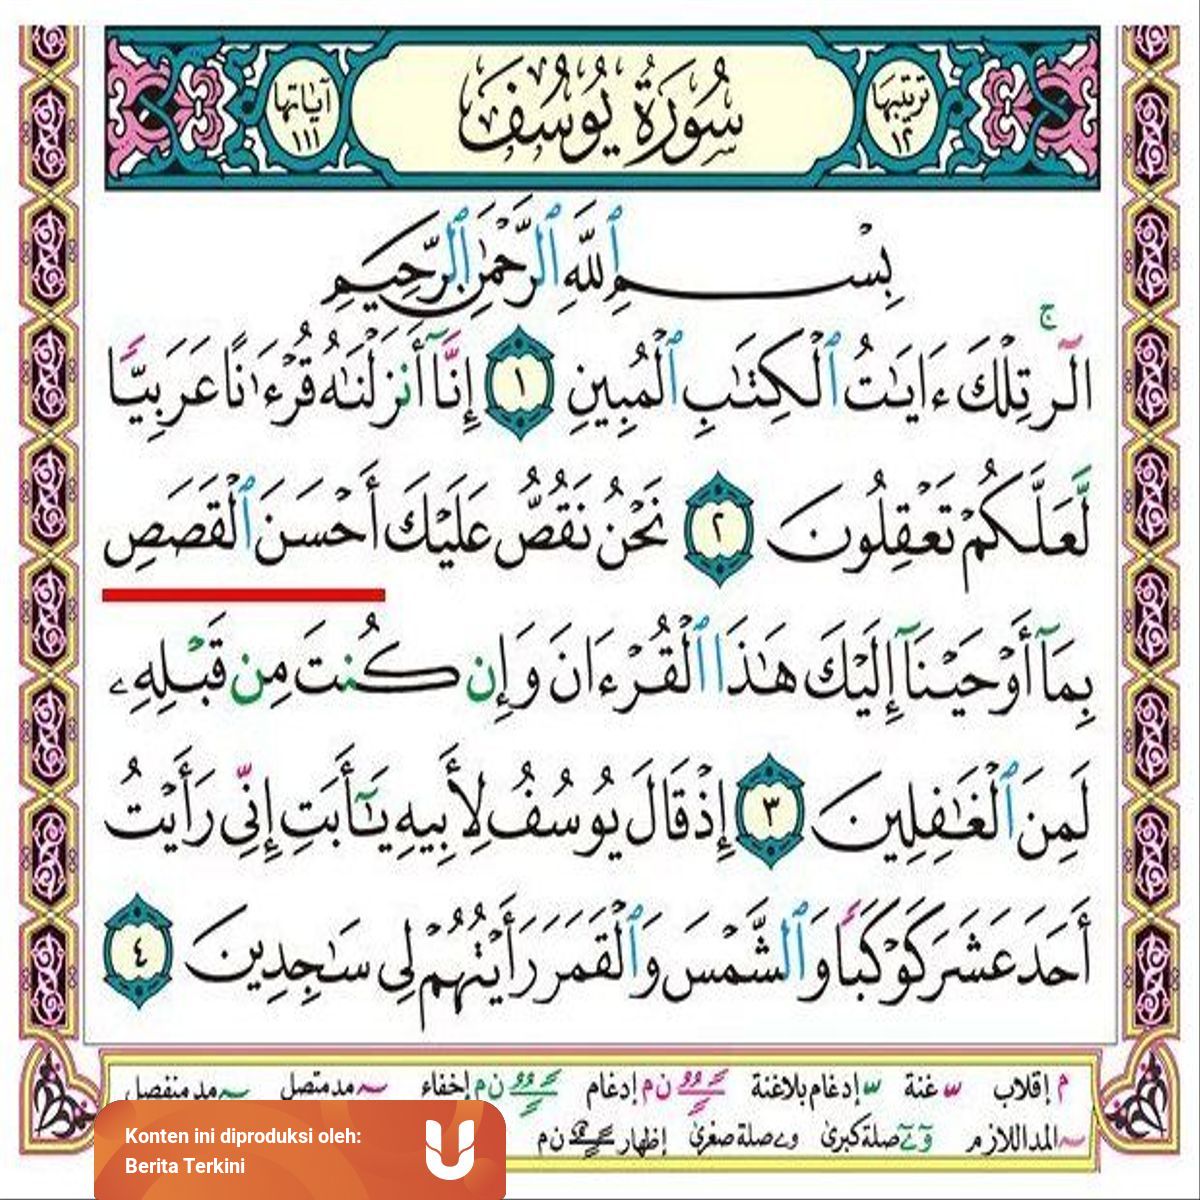 ترتيبها ١٢
سُورَةُ يُوسُفَ
آياتها ١١١
بِسْمِ ٱللَّهِ ٱلرَّحْمَٰنِ ٱلرَّحِيمِ
الٓر ۚ تِلْكَ ءَايَٰتُ ٱلْكِتَٰبِ ٱلْمُبِينِ ١ إِنَّآ أَنزَلْنَٰهُ قُرْءَٰنًا عَرَبِيًّا
لَّعَلَّكُمْ تَعْقِلُونَ ٢ نَحْنُ نَقُصُّ عَلَيْكَ أَحْسَنَ ٱلْقَصَصِ
بِمَآ أَوْحَيْنَآ إِلَيْكَ هَٰذَا ٱلْقُرْءَانَ وَإِن كُنتَ مِن قَبْلِهِۦ
لَمِنَ ٱلْغَٰفِلِينَ ٣ إِذْ قَالَ يُوسُفُ لِأَبِيهِ يَٰٓأَبَتِ إِنِّى رَأَيْتُ
أَحَدَ عَشَرَ كَوْكَبًا وَٱلشَّمْسَ وَٱلْقَمَرَ رَأَيْتُهُمْ لِى سَٰجِدِينَ ٤
م إقلاب غنة إدغام بلاغنة ن م إدغام ن م إخفاء مد متصل مد منفصل
المد اللازم صلة كبرى صلة صغرى إظهار ن م
Konten ini diproduksi oleh:
Berita Terkini